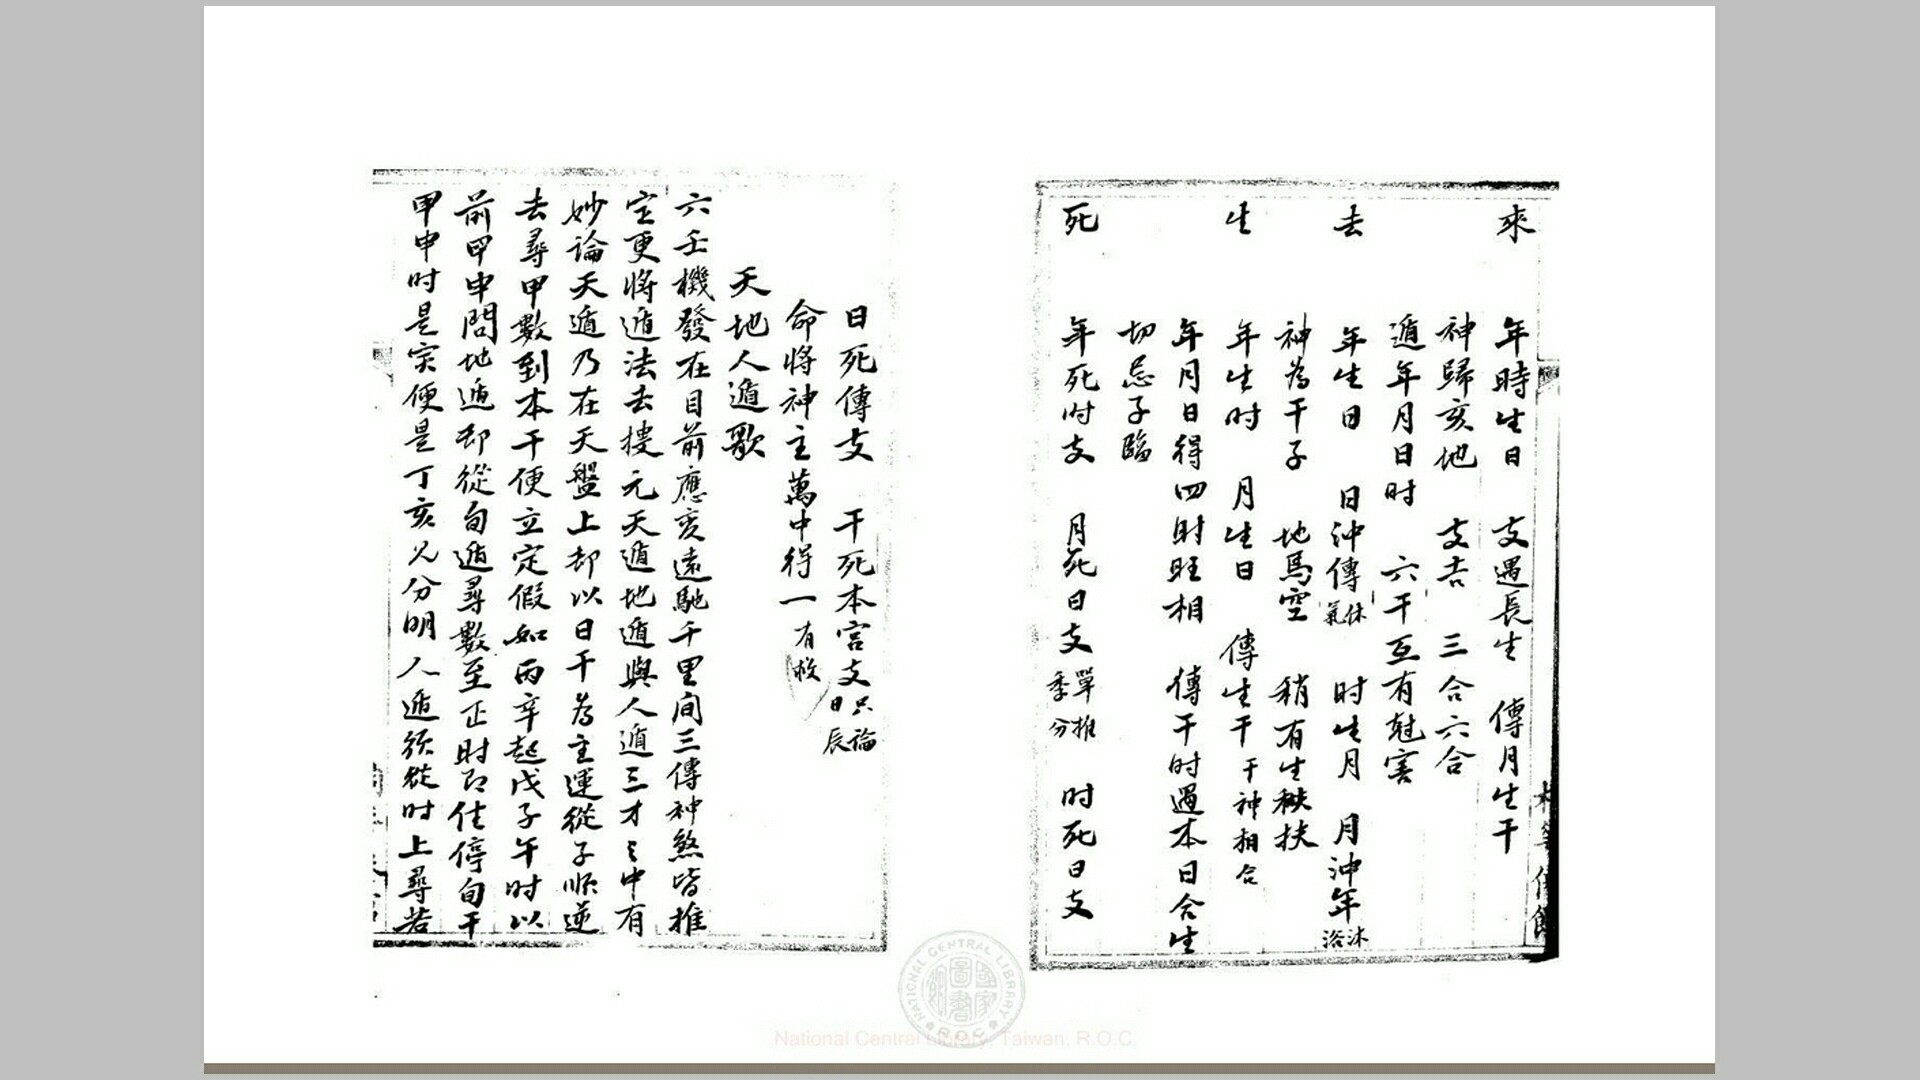 來 年時生日 支遇長生 傳月生干
神歸亥地 支吉 三合六合
遁年月日时 六干互有尅害
去 年生日 日沖傳休氣 时生月 月沖年沐浴
神為干子 地馬空 稍有生秧扶
生 年生时 月生日 傳生干干神相合
年月日得四財旺相 傳干时遇本日合生
切忌子臨
死 年死时支 月死日支單推季分 时死日支
日死傳支 干死本宮支只論日辰
命将神主萬中得一有
天地人遁歌
六壬機發在目前應亥遠馳千里间三傳神煞皆推
定更将遁法去搜元天遁地遁與人遁三才之中有
妙論天遁乃在天盤上却以日干為主運從子順逆
去尋甲數到本干便立定假如丙辛起戊子午时以
前甲申問地遁却從旬遁尋數至正时即住停旬干
甲申时是实便是丁亥兄分明人遁须從时上尋若
National Central Library, Taiwan, R.O.C.
NATIONAL CENTRAL LIBRARY
R.O.C.
國家圖書館